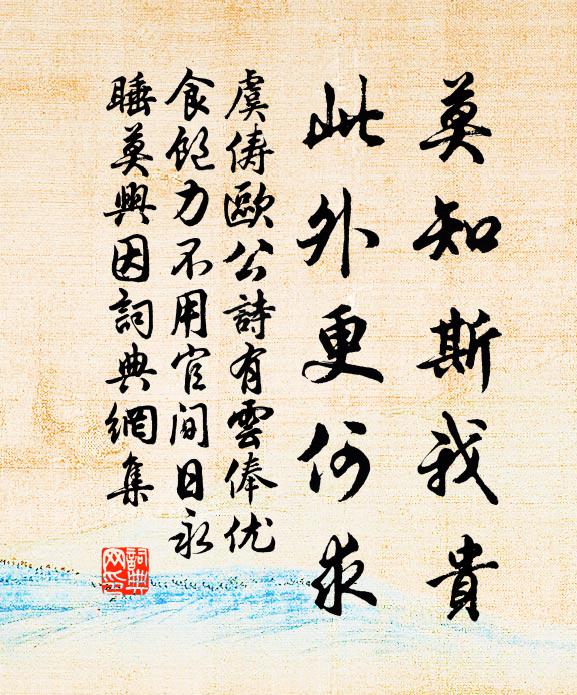 莫知斯我貴
此外更何求
虞儔歐公詩有雲俸优
食飽力不用官间日永
睡莫興因詞典網集
詞典网